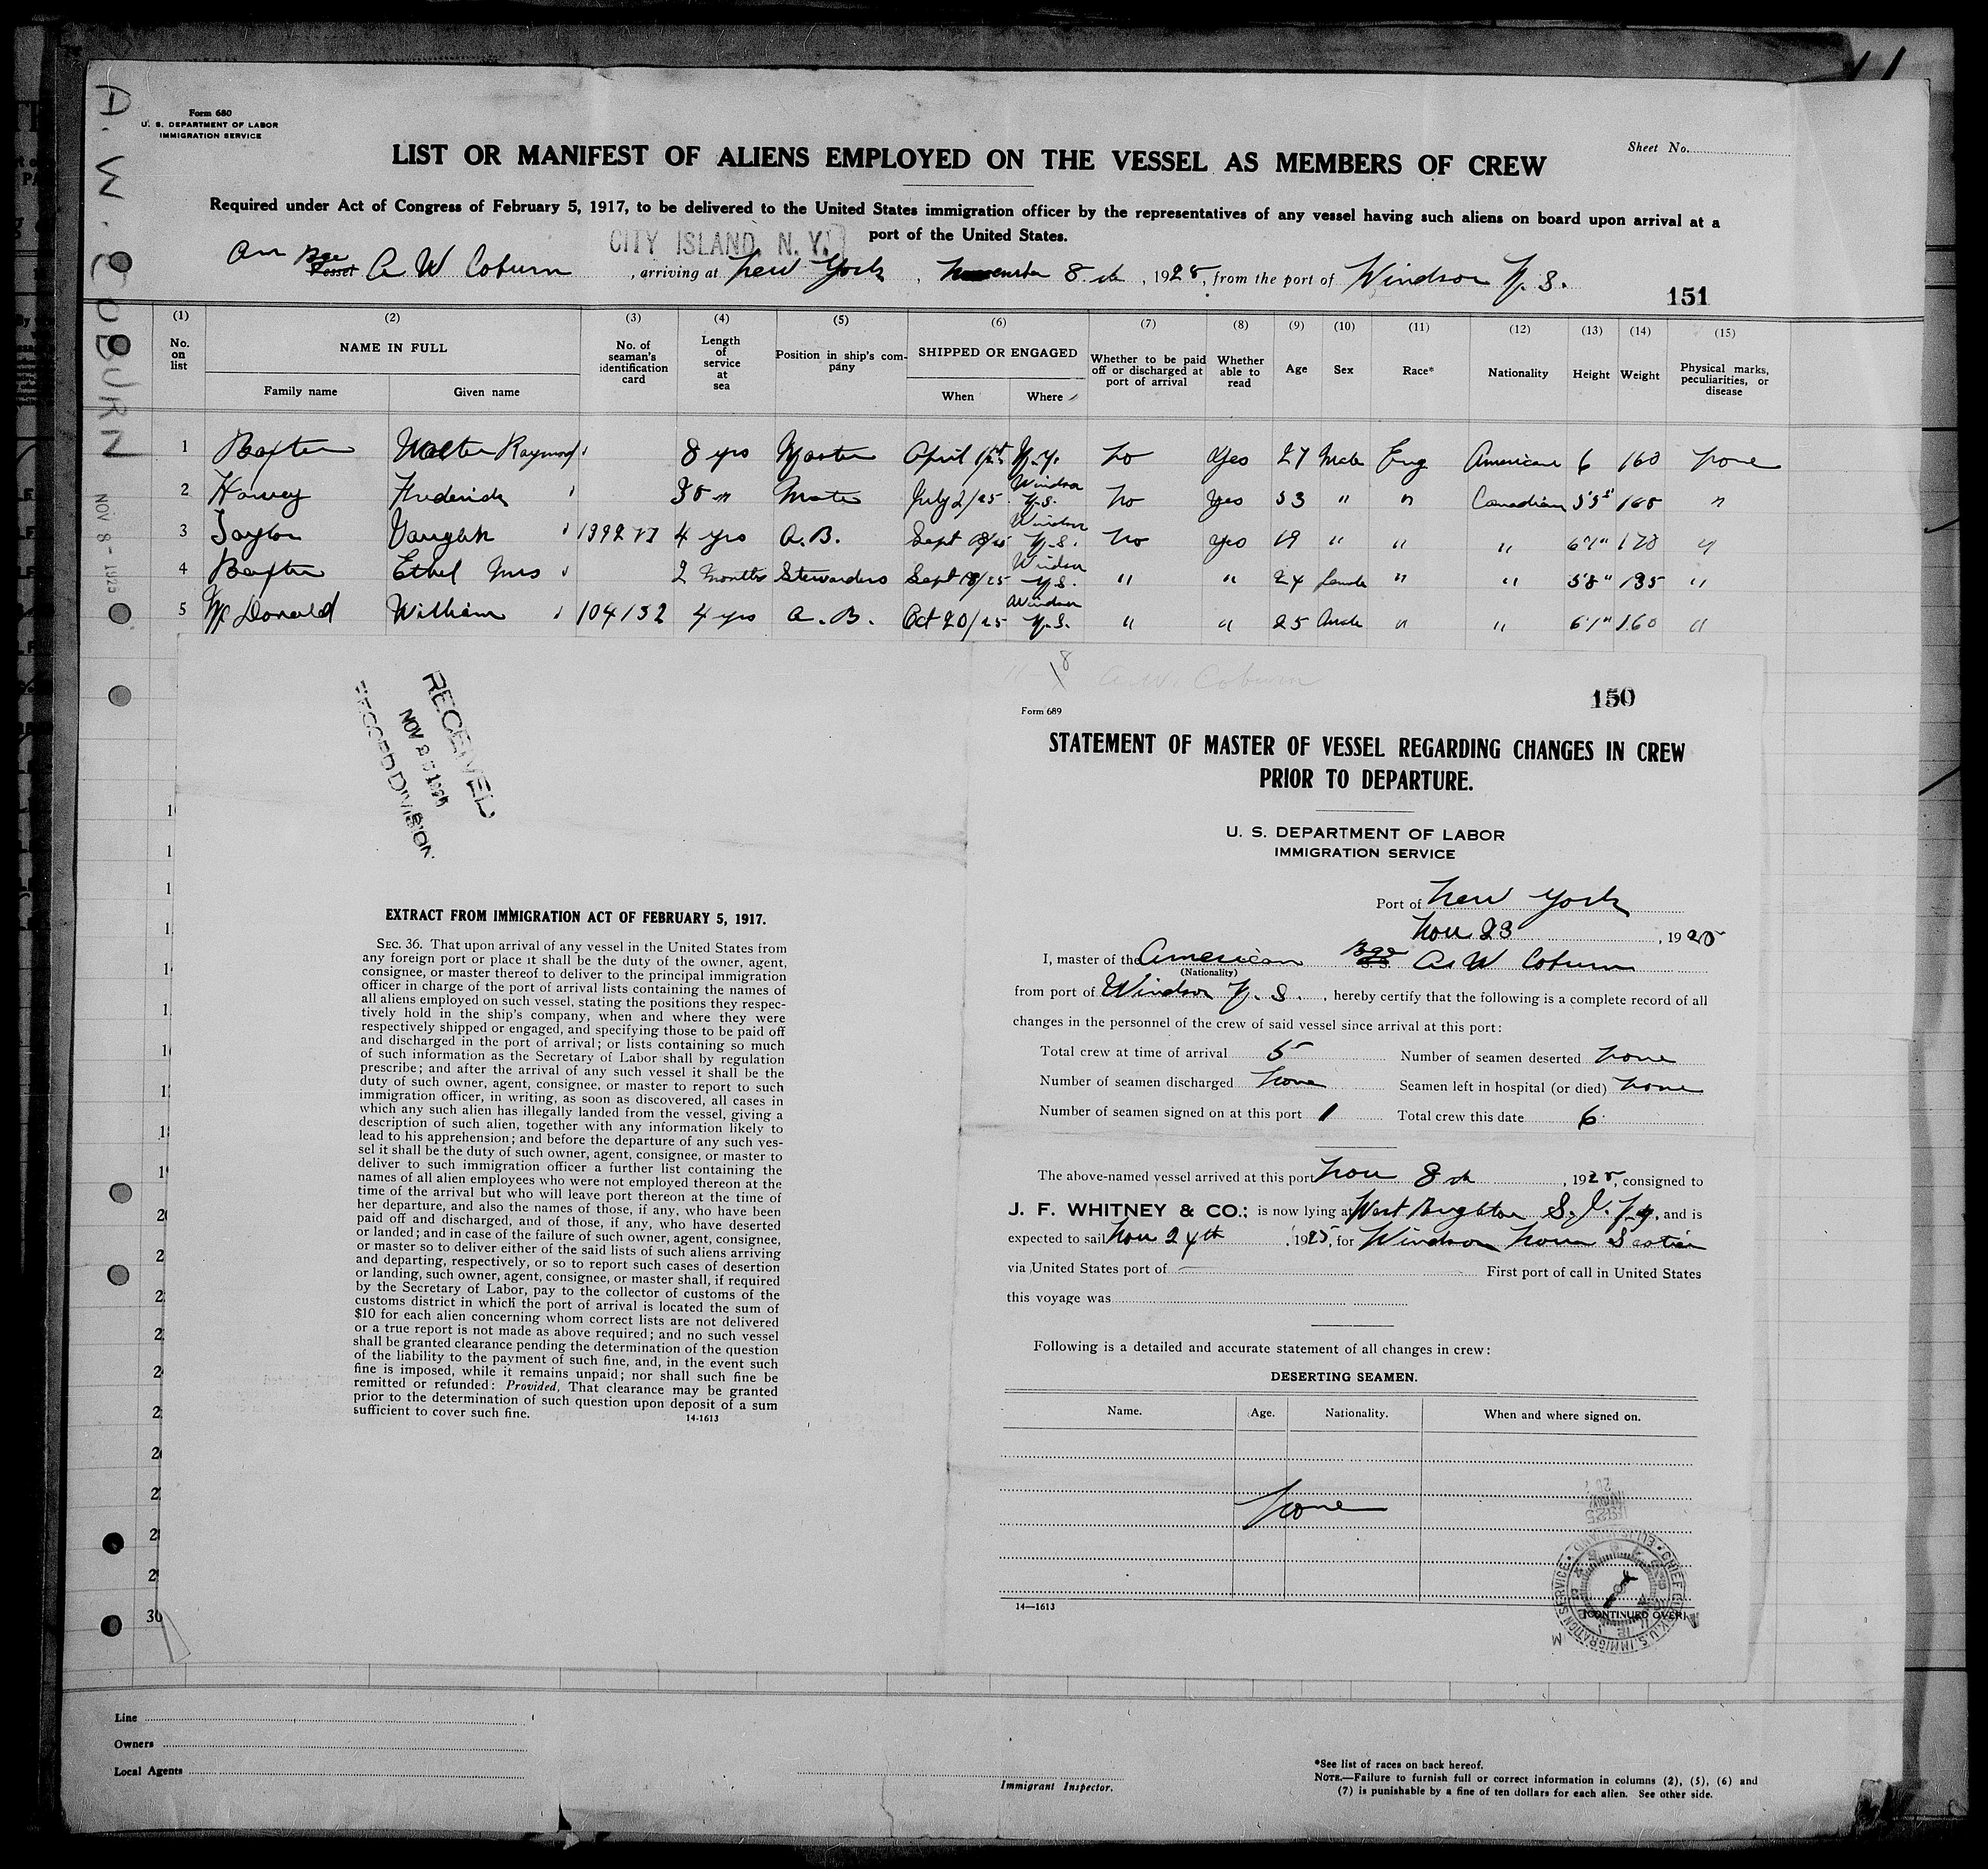 A. W. COBURN
Form 680
U. S. DEPARTMENT OF LABOR
IMMIGRATION SERVICE
Sheet No.
LIST OR MANIFEST OF ALIENS EMPLOYED ON THE VESSEL AS MEMBERS OF CREW
Required under Act of Congress of February 5, 1917, to be delivered to the United States immigration officer by the representatives of any vessel having such aliens on board upon arrival at a
port of the United States.
CITY ISLAND, N. Y.
Am Bge Vessel A W Coburn, arriving at New York, November 8th, 1925, from the port of Windsor N. S.
151
(1) (2) (3) (4) (5) (6) (7) (8) (9) (10) (11) (12) (13) (14) (15)
No. on list NAME IN FULL Family name Given name No. of seaman's identification card Length of service at sea Position in ship's company SHIPPED OR ENGAGED When Where Whether to be paid off or discharged at port of arrival Whether able to read Age Sex Race* Nationality Height Weight Physical marks, peculiarities, or disease
1 Baxter Walter Raymond 8 yrs Master April 1st N.Y. No Yes 27 Male Eng American 6 160 None
2 Harvey Frederick 30 " Mate July 2/25 Windsor N.S. No Yes 53 " " Canadian 5'5" 165 "
3 Taylor Vaughan 4 yrs A.B. Sept Windsor N.S. No Yes 19 " " " 6'1" 170 "
4 Baxter Ethel Mrs 2 months Stewardess Sept 18/25 Windsor N.S. " " 24 female " " 5'8" 135 "
5 McDonald William 104132 4 yrs A.B. Oct 20/25 Windsor N.S. " " 25 Male " " 6'1" 160 "
NOV 8 - 1925
RECEIVED
NOV 25 1925
RECORD DIVISION
EXTRACT FROM IMMIGRATION ACT OF FEBRUARY 5, 1917.
SEC. 36. That upon arrival of any vessel in the United States from
any foreign port or place it shall be the duty of the owner, agent,
consignee, or master thereof to deliver to the principal immigration
officer in charge of the port of arrival lists containing the names of
all aliens employed on such vessel, stating the positions they respec-
tively hold in the ship's company, when and where they were
respectively shipped or engaged, and specifying those to be paid off
and discharged in the port of arrival; or lists containing so much
of such information as the Secretary of Labor shall by regulation
prescribe; and after the arrival of any such vessel it shall be the
duty of such owner, agent, consignee, or master to report to such
immigration officer, in writing, as soon as discovered, all cases in
which any such alien has illegally landed from the vessel, giving a
description of such alien, together with any information likely to
lead to his apprehension; and before the departure of any such ves-
sel it shall be the duty of such owner, agent, consignee, or master to
deliver to such immigration officer a further list containing the
names of all alien employees who were not employed thereon at the
time of the arrival but who will leave port thereon at the time of
her departure, and also the names of those, if any, who have been
paid off and discharged, and of those, if any, who have deserted
or landed; and in case of the failure of such owner, agent, consignee,
or master so to deliver either of the said lists of such aliens arriving
and departing, respectively, or so to report such cases of desertion
or landing, such owner, agent, consignee, or master shall, if required
by the Secretary of Labor, pay to the collector of customs of the
customs district in which the port of arrival is located the sum of
$10 for each alien concerning whom correct lists are not delivered
or a true report is not made as above required; and no such vessel
shall be granted clearance pending the determination of the question
of the liability to the payment of such fine, and, in the event such
fine is imposed, while it remains unpaid; nor shall such fine be
remitted or refunded: Provided, That clearance may be granted
prior to the determination of such question upon deposit of a sum
sufficient to cover such fine.
14-1613
11-8 A.W. Coburn
150
Form 689
STATEMENT OF MASTER OF VESSEL REGARDING CHANGES IN CREW
PRIOR TO DEPARTURE.
U. S. DEPARTMENT OF LABOR
IMMIGRATION SERVICE
Port of New York
Nov 23, 1925
I, master of the American Bge S.S. A W Coburn
(Nationality)
from port of Windsor N. S., hereby certify that the following is a complete record of all
changes in the personnel of the crew of said vessel since arrival at this port:
Total crew at time of arrival 5 Number of seamen deserted None
Number of seamen discharged None Seamen left in hospital (or died) None
Number of seamen signed on at this port 1 Total crew this date 6
The above-named vessel arrived at this port Nov 8th, 1925, consigned to
J. F. WHITNEY & CO.; is now lying at West Brighton S. I. N.Y. and is
expected to sail Nov 24th, 1925, for Windsor Nova Scotia
via United States port of First port of call in United States
this voyage was
Following is a detailed and accurate statement of all changes in crew:
DESERTING SEAMEN.
Name. Age. Nationality. When and where signed on.
None
14—1613
(CONTINUED OVER)
30
Line
Owners
Local Agents
Immigrant Inspector.
*See list of races on back hereof.
NOTE.—Failure to furnish full or correct information in columns (2), (5), (6) and
(7) is punishable by a fine of ten dollars for each alien. See other side.